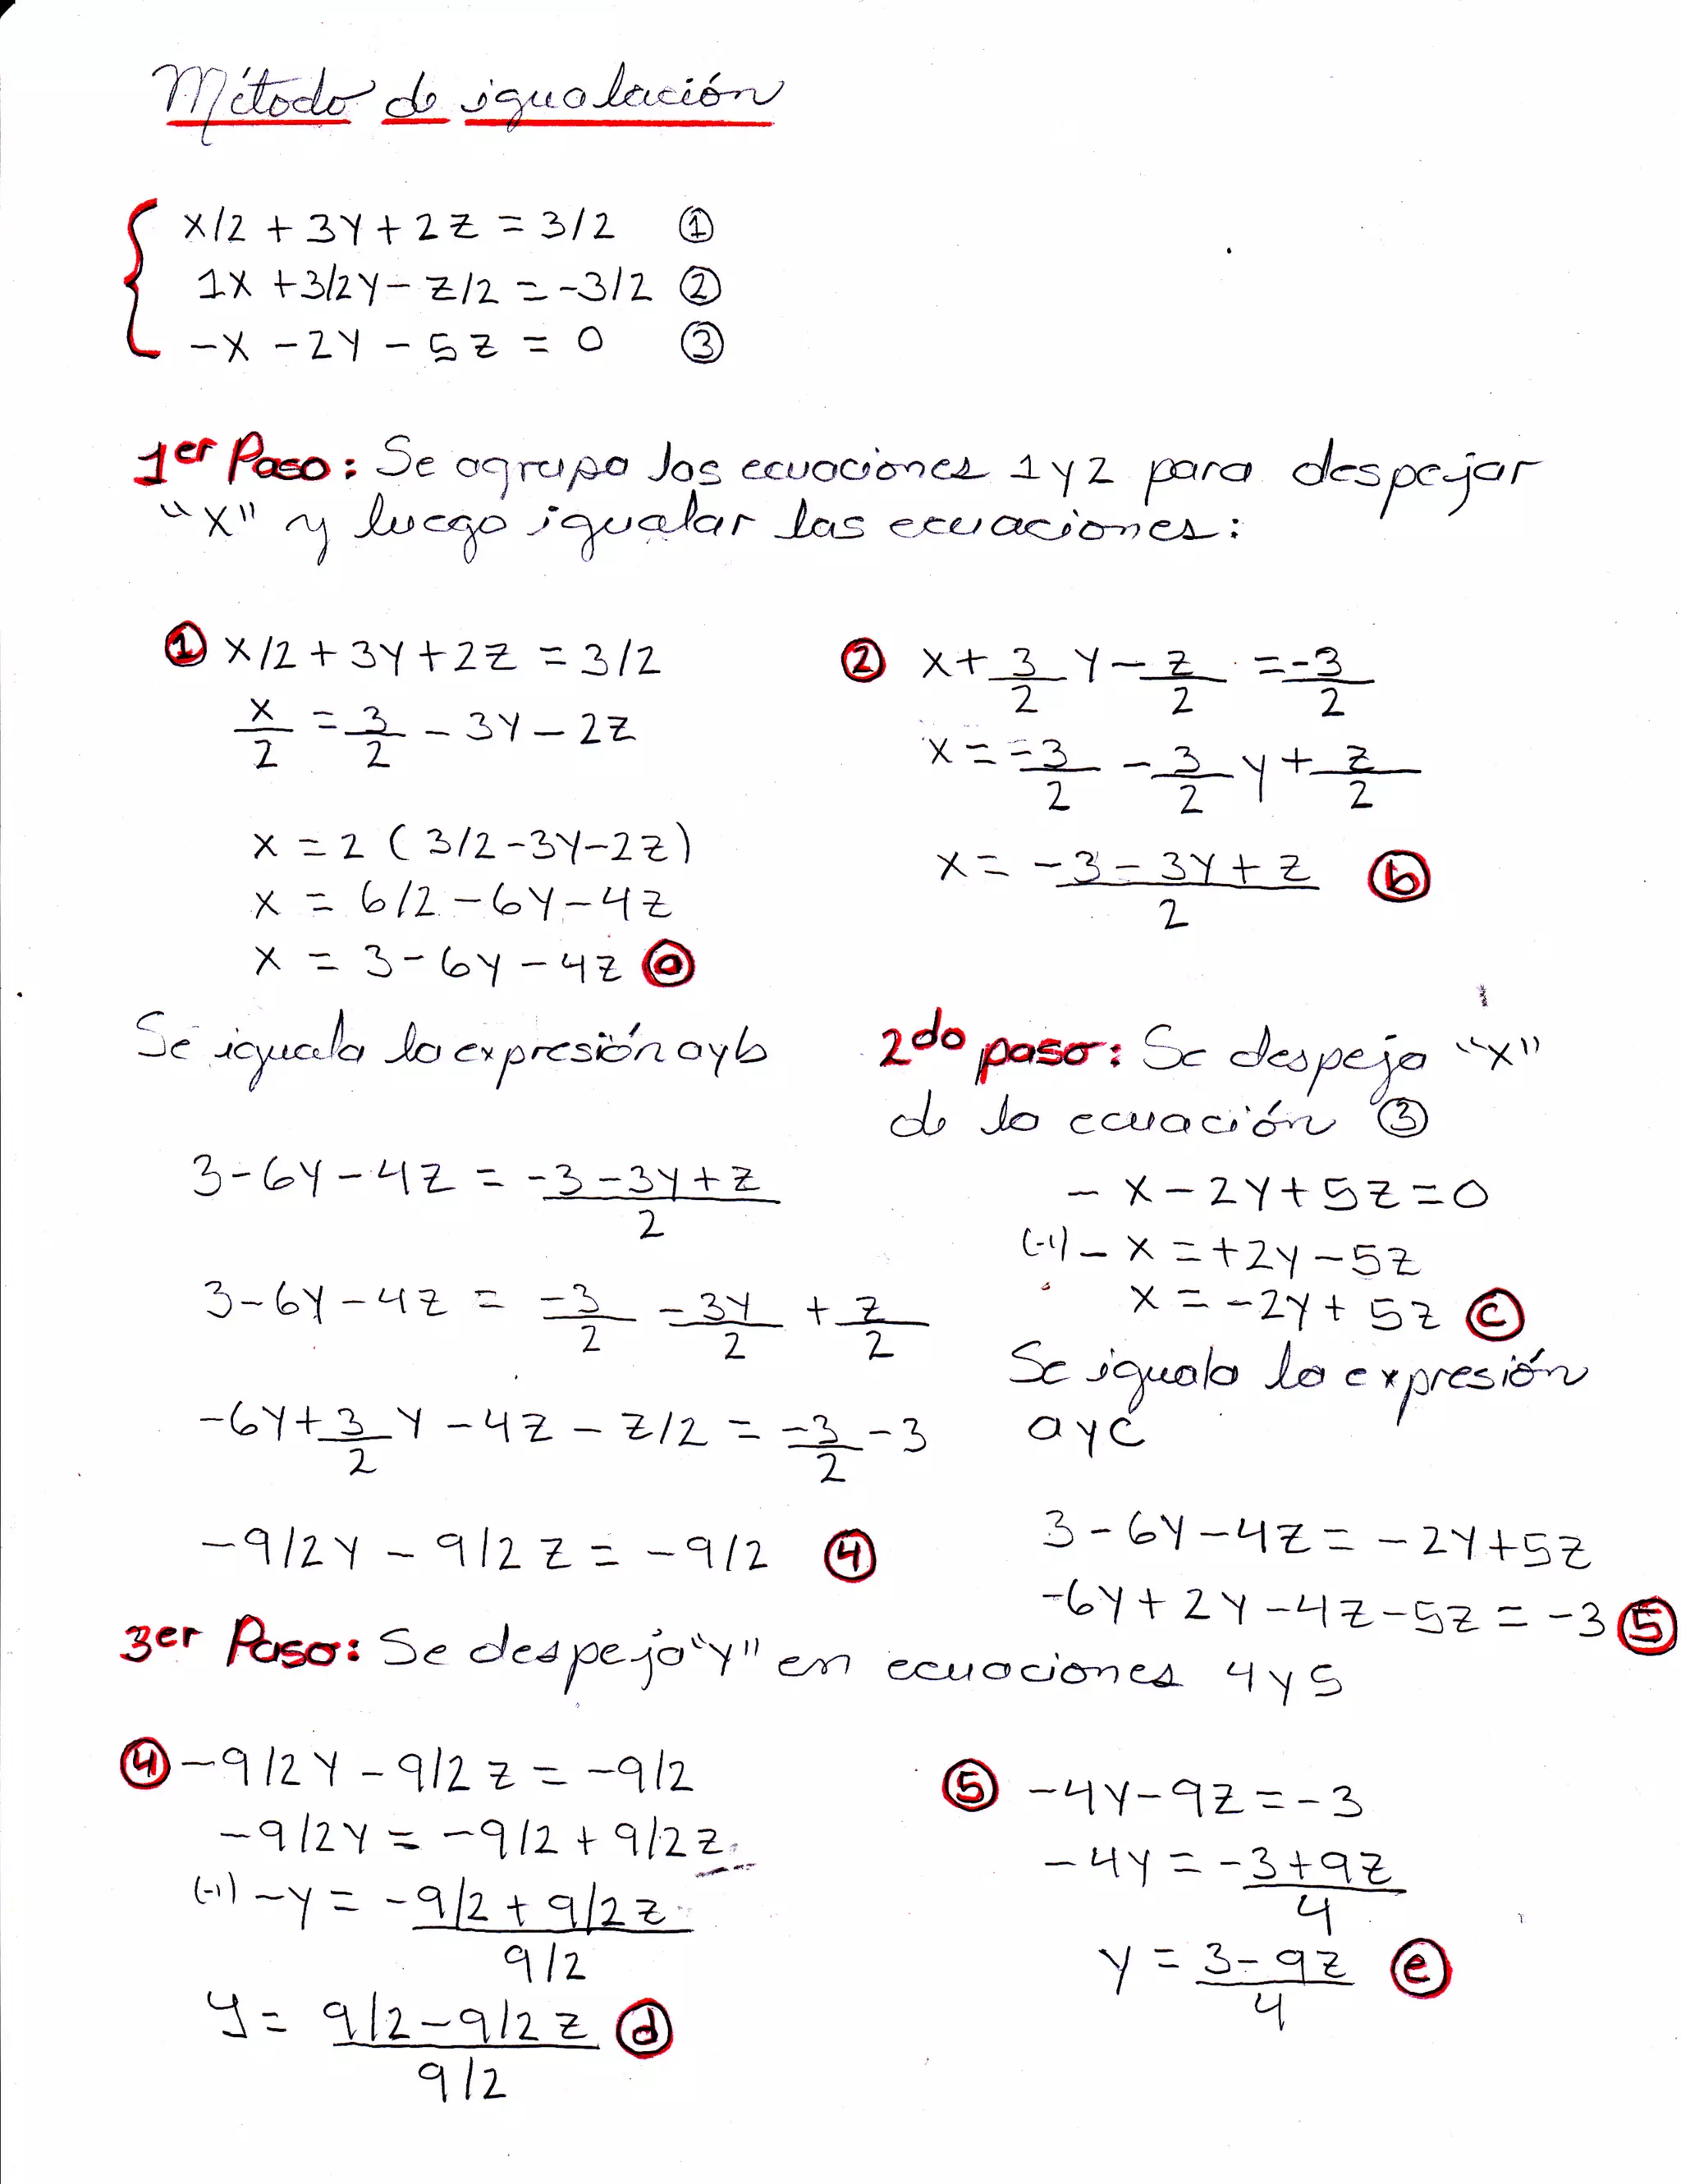 Método de igualación
x/2 + 3y + 2z = 3/2 ①
1x + 3/2y - z/2 = -3/2 ②
-x - 2y - 5z = 0 ③
1er Paso: Se agrupa las ecuaciones 1 y 2 para despejar
"x" y luego igualar las ecuaciones:
① x/2 + 3y + 2z = 3/2
x/2 = 3/2 - 3y - 2z
x = 2 (3/2 - 3y - 2z)
x = 6/2 - 6y - 4z
x = 3 - 6y - 4z ⓐ
② x + 3/2 y - z/2 = -3/2
x = -3/2 - 3/2 y + z/2
x = -3 - 3y + z / 2 ⓑ
Se iguala la expresión a y b
3 - 6y - 4z = -3 - 3y + z / 2
3 - 6y - 4z = -3/2 - 3y/2 + z/2
-6y + 3/2 y - 4z - z/2 = -3/2 - 3
-9/2y - 9/2z = -9/2 ④
2do paso: Se despeja "x"
de la ecuación ③
- x - 2y + 5z = 0
(-1) - x = +2y - 5z
x = -2y + 5z ⓒ
Se iguala la expresión
a y c
3 - 6y - 4z = -2y + 5z
-6y + 2y - 4z - 5z = -3 ⑤
3er Paso: Se despeja "y" en ecuaciones 4 y 5
④ -9/2y - 9/2z = -9/2
-9/2y = -9/2 + 9/2z
(-1) -y = -9/2 + 9/2z / 9/2
y = 9/2 - 9/2z / 9/2 ⓓ
⑤ -4y - 9z = -3
-4y = -3 + 9z / 4
y = 3 - 9z / 4 ⓔ